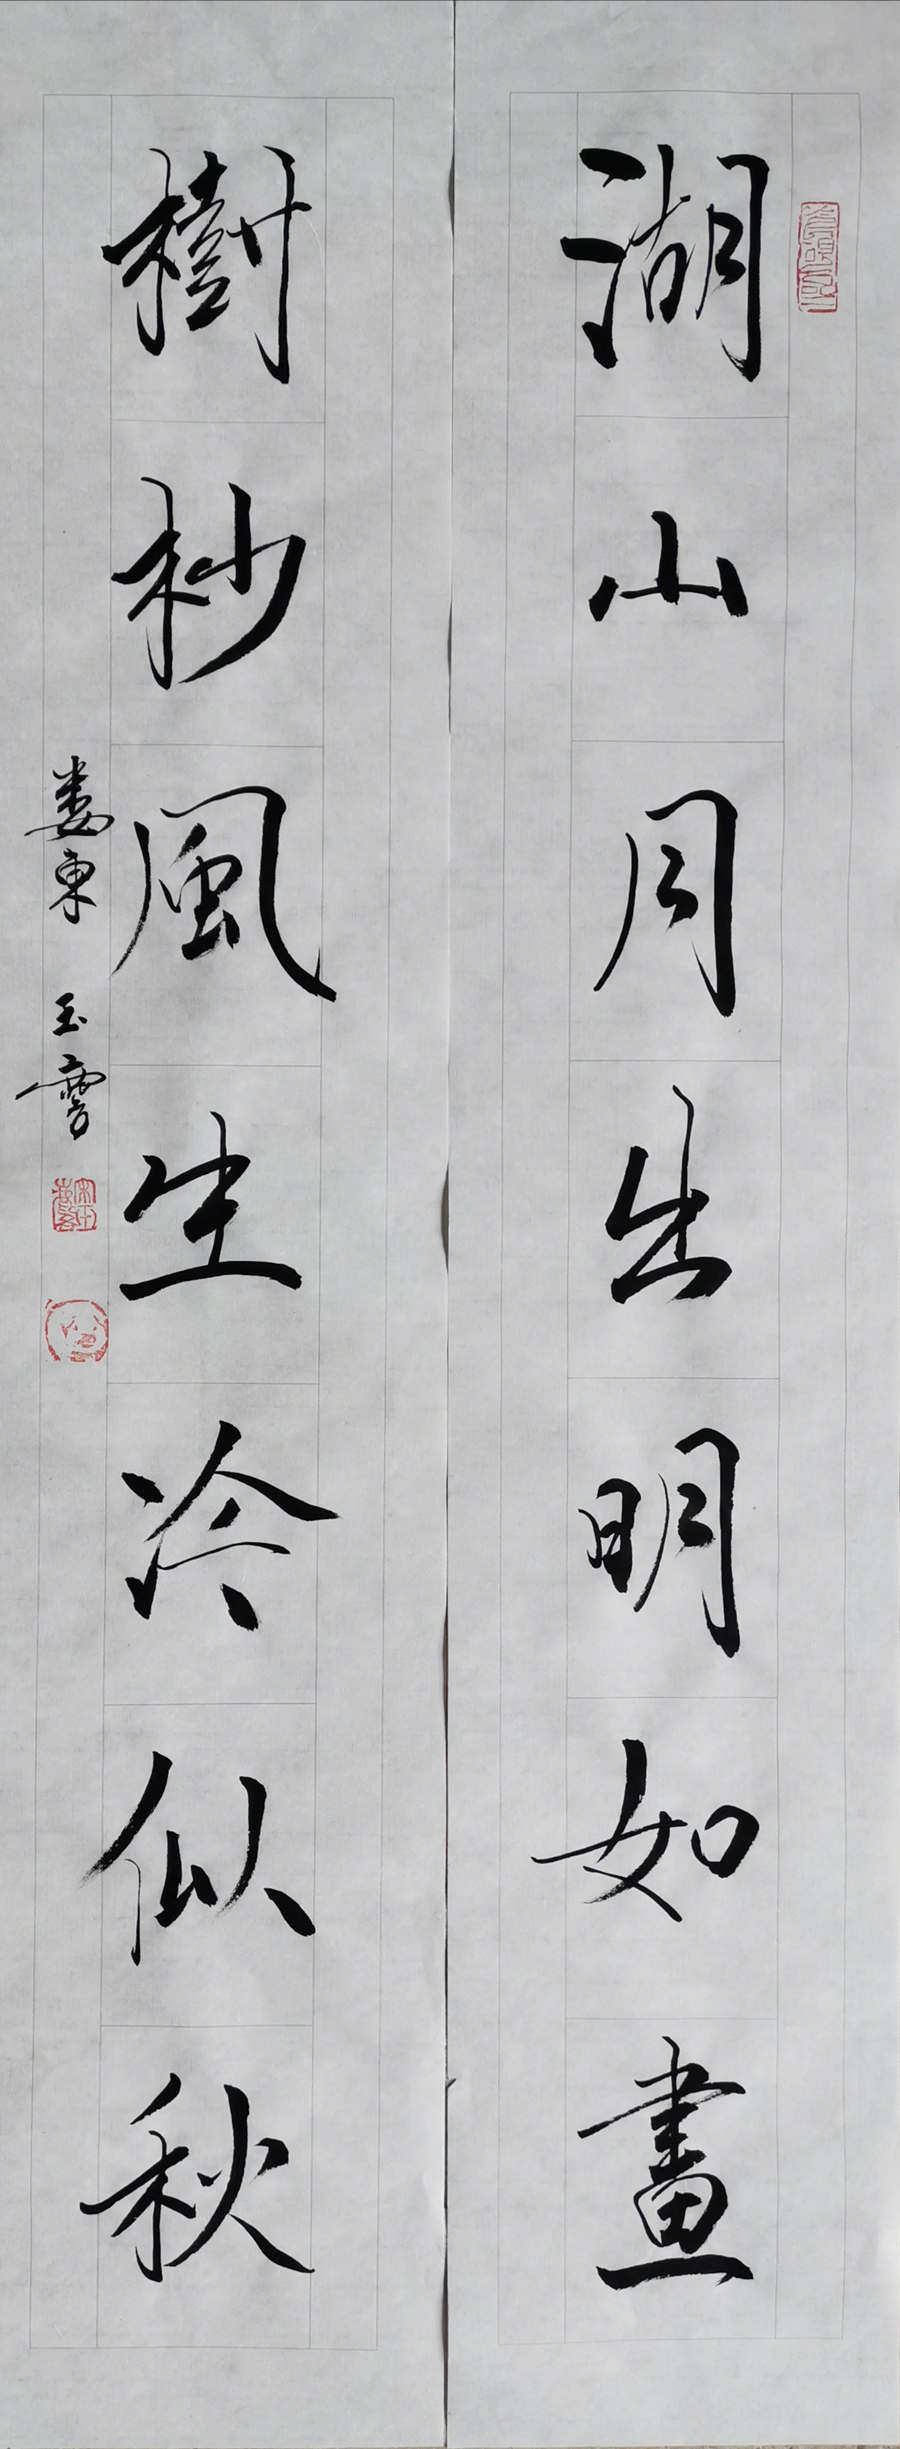 湖山月出明如畫
樹杪風生冷似秋
婁東 玉